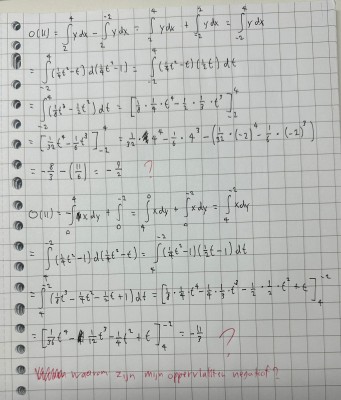 O(U) = ∫₂⁴ y dx − ∫₂⁻² y dx = ∫₂⁴ y dx + ∫₋₂² y dx = ∫₋₂⁴ y dx
= ∫₋₂⁴ (¼t² − t) d(¼t² − 1) = ∫₋₂⁴ (¼t² − t)(½t) dt
= ∫₋₂⁴ (⅛t³ − ½t²) dt = [⅛ · ¼ · t⁴ − ½ · ⅓ · t³]₋₂⁴
= [1/32 t⁴ − 1/6 t³]₋₂⁴ = 1/32 · 4⁴ − 1/6 · 4³ − (1/32 · (−2)⁴ − 1/6 · (−2)³)
= −8/3 − (11/6) = −9/2 ?
O(U) = −∫₀⁴ x dy + ∫₀⁻² = ∫₄⁰ x dy + ∫₀⁻² x dy = ∫₄⁻² x dy
= ∫₄⁻² (¼t² − 1) d(¼t² − t) = ∫₄⁻² (¼t² − 1)(½t − 1) dt
= ∫₄⁻² (⅛t³ − ¼t² − ½t + 1) dt = [⅛ · ¼ · t⁴ − ¼ · ⅓ · t³ − ½ · ½ · t² + t]₄⁻²
t⁴ − 1/12 t³ − ¼t² + t]₄⁻² =
?
waarom zijn mijn oppervlakten negatief?